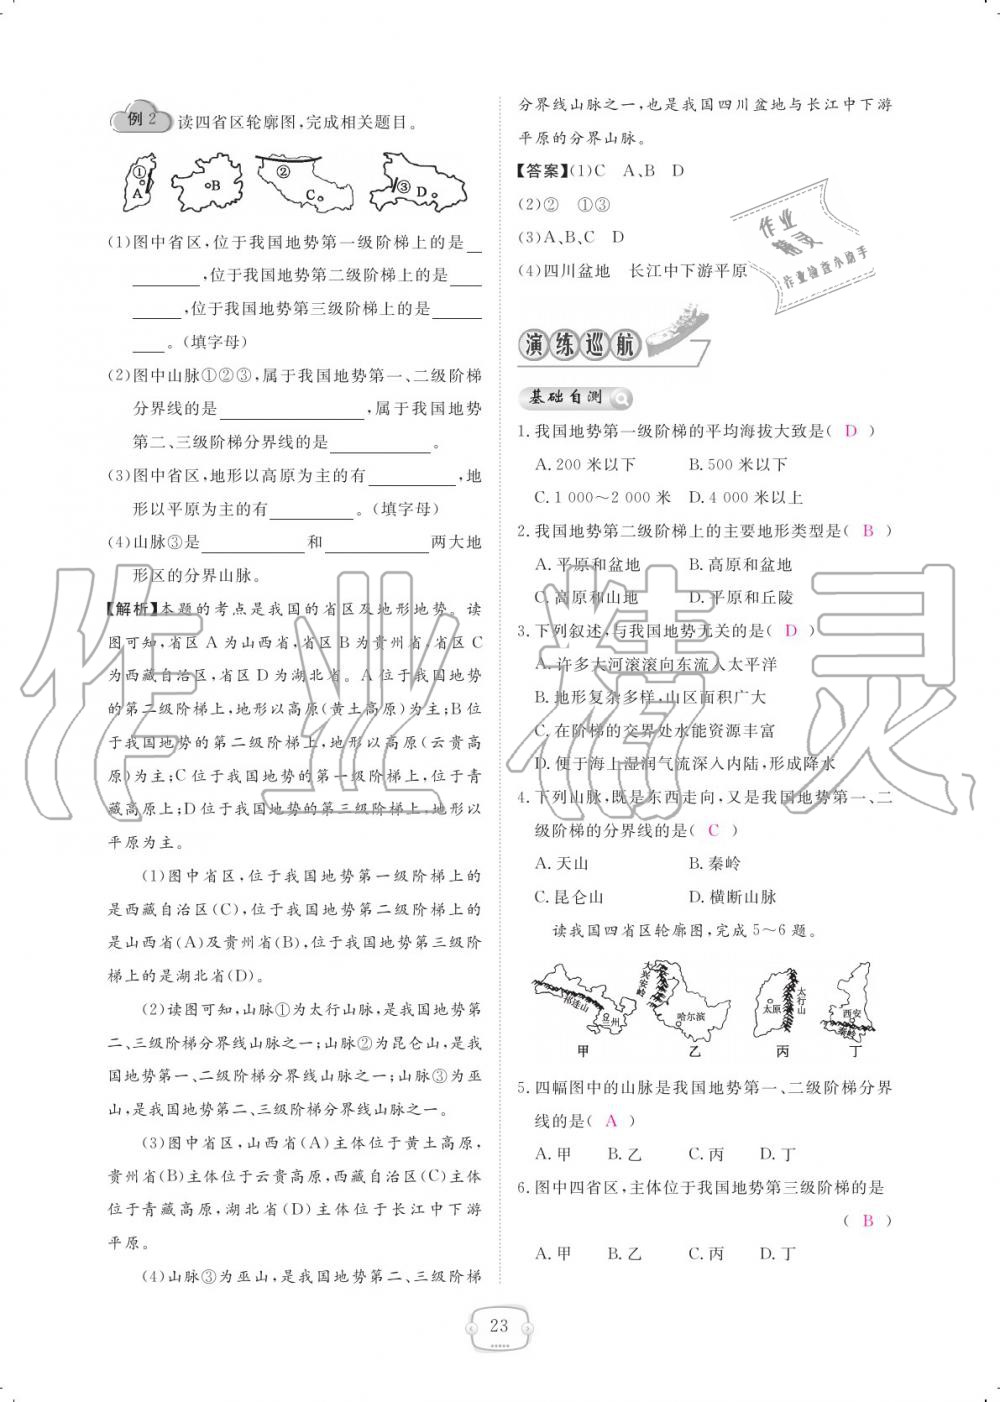 例2 读四省区轮廓图,完成相关题目。
① A B ② C ③ D
(1)图中省区,位于我国地势第一级阶梯上的是
,位于我国地势第二级阶梯上的是
,位于我国地势第三级阶梯上的是
。(填字母)
(2)图中山脉①②③,属于我国地势第一、二级阶梯
分界线的是 ,属于我国地势
第二、三级阶梯分界线的是 。
(3)图中省区,地形以高原为主的有 ,地
形以平原为主的有 。(填字母)
(4)山脉③是 和 两大地
形区的分界山脉。
【解析】本题的考点是我国的省区及地形地势。读
图可知,省区A为山西省,省区B为贵州省,省区C
为西藏自治区,省区D为湖北省。A位于我国地势
的第二级阶梯上,地形以高原(黄土高原)为主;B位
于我国地势的第二级阶梯上,地形以高原(云贵高
原)为主;C位于我国地势的第一级阶梯上,位于青
藏高原上;D位于我国地势的第三级阶梯上,地形以
平原为主。
(1)图中省区,位于我国地势第一级阶梯上的
是西藏自治区(C),位于我国地势第二级阶梯上的
是山西省(A)及贵州省(B),位于我国地势第三级阶
梯上的是湖北省(D)。
(2)读图可知,山脉①为太行山脉,是我国地势第
二、三级阶梯分界线山脉之一;山脉②为昆仑山,是我
国地势第一、二级阶梯分界线山脉之一;山脉③为巫
山,是我国地势第二、三级阶梯分界线山脉之一。
(3)图中省区,山西省(A)主体位于黄土高原,
贵州省(B)主体位于云贵高原,西藏自治区(C)主体
位于青藏高原,湖北省(D)主体位于长江中下游
平原。
(4)山脉③为巫山,是我国地势第二、三级阶梯
分界线山脉之一,也是我国四川盆地与长江中下游
平原的分界山脉。
【答案】(1)C A、B D
(2)② ①③
(3)A、B、C D
(4)四川盆地 长江中下游平原
作业
精灵
作业检查小助手
演练巡航
基础自测
1.我国地势第一级阶梯的平均海拔大致是( D )
A.200米以下 B.500米以下
C.1 000～2 000米 D.4 000米以上
2.我国地势第二级阶梯上的主要地形类型是( B )
A.平原和盆地 B.高原和盆地
C.高原和山地 D.平原和丘陵
3.下列叙述,与我国地势无关的是( D )
A.许多大河滚滚向东流入太平洋
B.地形复杂多样,山区面积广大
C.在阶梯的交界处水能资源丰富
D.便于海上湿润气流深入内陆,形成降水
4.下列山脉,既是东西走向,又是我国地势第一、二
级阶梯的分界线的是( C )
A.天山 B.秦岭
C.昆仑山 D.横断山脉
读我国四省区轮廓图,完成5～6题。
祁连山 兰州 大兴安岭 哈尔滨 太原 太行山 西安 秦岭
甲 乙 丙 丁
5.四幅图中的山脉是我国地势第一、二级阶梯分界
线的是( A )
A.甲 B.乙 C.丙 D.丁
6.图中四省区,主体位于我国地势第三级阶梯的是
( B )
A.甲 B.乙 C.丙 D.丁
23
作业精灵